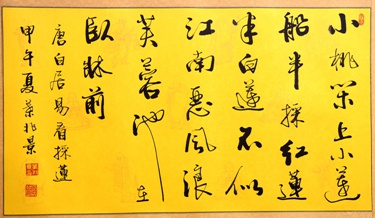 小桃閑上小蓮
船半採紅蓮
半白蓮不似
江南惡風浪
芙蓉池在
臥牀前
唐白居易看採蓮
甲午夏